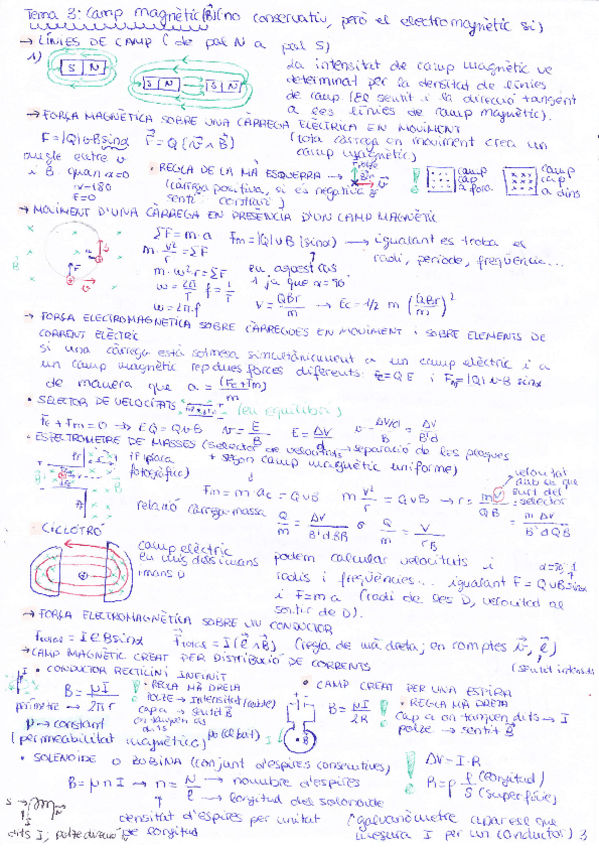 Tema 3: Camp magnètic (B) (no conservatiu, però el electromagnètic si)
→ LÍNIES DE CAMP (de pol N a pol S)
1)
S N
S N
S N
La intensitat de camp magnètic ve
determinat per la densitat de línies
de camp. (El sentit i la direcció tangent
a les línies de camp magnètic).
→ FORÇA MAGNÈTICA SOBRE UNA CÀRREGA ELÈCTRICA EN MOVIMENT
F=|Q|vB sinα F = Q(v∧B) (tota càrrega en moviment crea un
camp magnètic)
angle entre v
i B. quan α=0
α=180
F=0
• REGLA DE LA MÀ ESQUERRA →
(càrrega positiva, si és negativa
sentit contrari)
camp
cap
a fora
camp
cap
a dins
→ MOVIMENT D'UNA CÀRREGA EN PRESÈNCIA D'UN CAMP MAGNÈTIC
ΣF = m·a Fm = |Q|vB (sinα) → igualant es troba el
radi, període, freqüència...
m·v²/r = ΣF
m·w²r = ΣF en aquest cas
1 ja que α=90
w = 2π/T f = 1/T
w = 2π·f
v = QBr/m → Ec = 1/2 m (QBr/m)²
→ FORÇA ELECTROMAGNÈTICA SOBRE CÀRREGUES EN MOVIMENT I SOBRE ELEMENTS DE
CORRENT ELÈCTRIC
si una càrrega està sotmesa simultàniament a un camp elèctric i a
un camp magnètic rep dues forces diferents: Fe=QE i Fm=|Q|v·B sinα
de manera que a = (Fe+Fm)/m
• SELECTOR DE VELOCITATS (en equilibri)
Fe + Fm = 0 → EQ = QvB v = E/B E = ΔV/d v = ΔV/d/B = ΔV/B·d
→ separació de les plaques
• ESPECTRÒMETRE DE MASSES (selector de velocitats
+ segon camp magnètic uniforme)
(placa
fotogràfica)
Fm = m·ac = QvB m v²/r = QvB → r = mv/QB = mΔV/B'dQB
velocitat
amb en que
surt del
selector
relació càrrega-massa Q/m = ΔV/B'dBR o Q/m = V/rB
• CICLOTRÓ
camp elèctric
en mig dels imans
imans D
podem calcular velocitats i
radis i freqüències... igualant F = QvB sinα
i F=m·a (radi de les D, velocitat al
sortir de D).
→ FORÇA ELECTROMAGNÈTICA SOBRE UN CONDUCTOR
Ftotal = IℓB sinα Ftotal = I(ℓ∧B) (regla de mà dreta; en comptes v, ℓ)
(sentit intensitat)
→ CAMP MAGNÈTIC CREAT PER DISTRIBUCIÓ DE CORRENTS
• CONDUCTOR RECTILINI INFINIT
B = μI/2πr
perímetre
μ → constant
(permeabilitat magnètica)
• REGLA MÀ DRETA
POLZE → Intensitat
cap a → sentit B
on tanquen els
dits
• CAMP CREAT PER UNA ESPIRA
B = μI/2R
• REGLA MÀ DRETA
cap a on tanquen dits → I
polze → sentit B
• SOLENOIDE O BOBINA (conjunt d'espires consecutives)
B = μnI → n = N/ℓ → nombre d'espires
→ longitud del solenoide
densitat d'espires per unitat
de longitud
ΔV = I·R
R = ρ ℓ (longitud)/S (superfície)
S N
dits I; polze
(galvanòmetre aparell que
mesura I per un conductor)